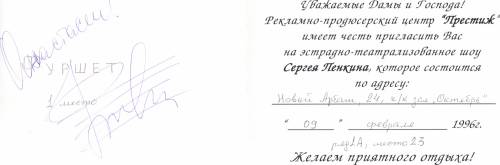 Анастасии!
УРШЕТ
1 место
Уважаемые Дамы и Господа!
Рекламно-продюсерский центр "Престиж"
имеет честь пригласить Вас
на эстрадно-театрализованное шоу
Сергея Пенкина, которое состоится
по адресу:
Новый Арбат, 24, к/к зал „Октябрь"
" 09 " февраля 1996г.
ряд 1А, место 23
Желаем приятного отдыха!